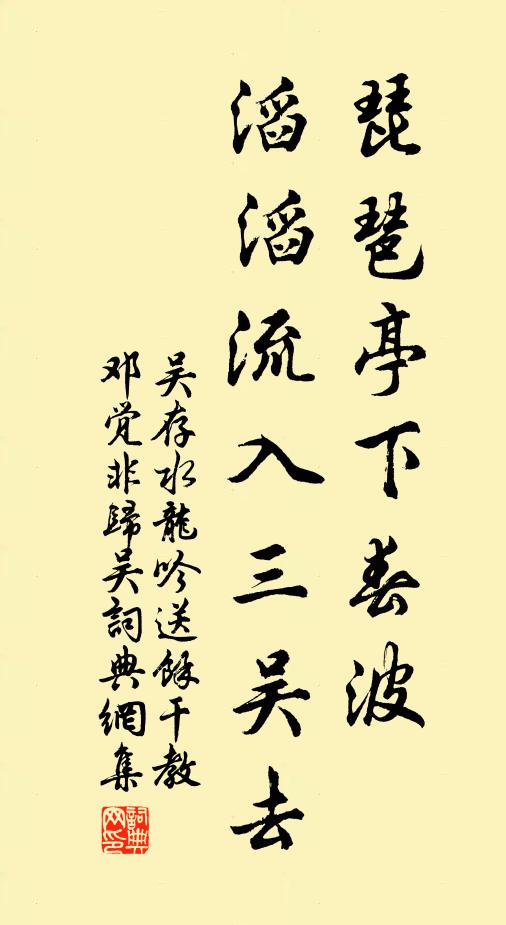 琵琶亭下春波
滔滔流入三吴去
吴存水龍吟送餘干教
邓觉非歸吴詞典網集
詞典网印